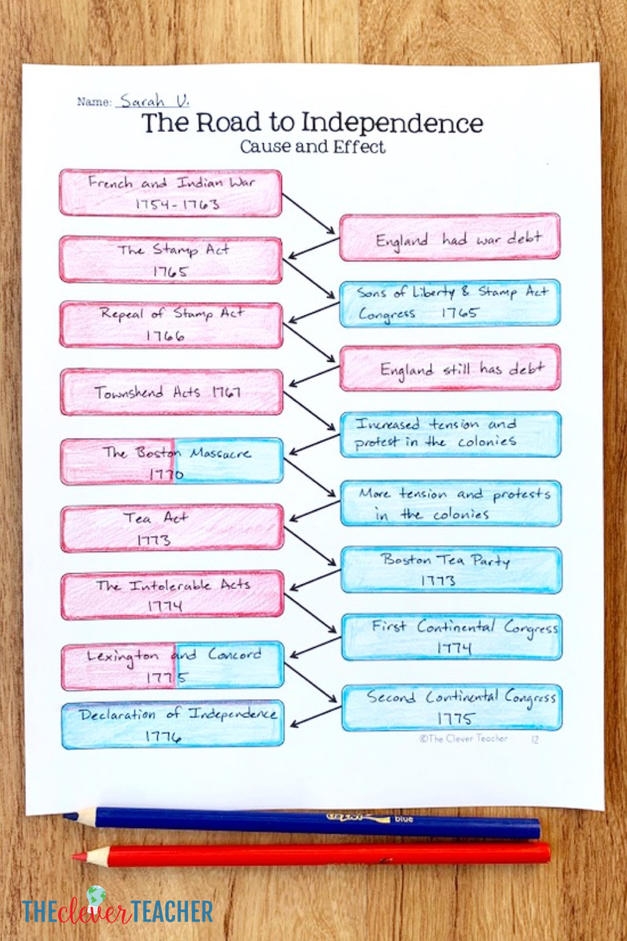 Name: Sarah V.
The Road to Independence
Cause and Effect
French and Indian War
1754-1763
England had war debt
The Stamp Act
1765
Sons of Liberty & Stamp Act
Congress 1765
Repeal of Stamp Act
1766
England still has debt
Townshend Acts 1767
Increased tension and
protest in the colonies
The Boston Massacre
1770
More tension and protests
in the colonies
Tea Act
1773
Boston Tea Party
1773
The Intolerable Acts
1774
First Continental Congress
1774
Lexington and Concord
1775
Second Continental Congress
1775
Declaration of Independence
1776
©The Clever Teacher 12
blue
THE clever TEACHER